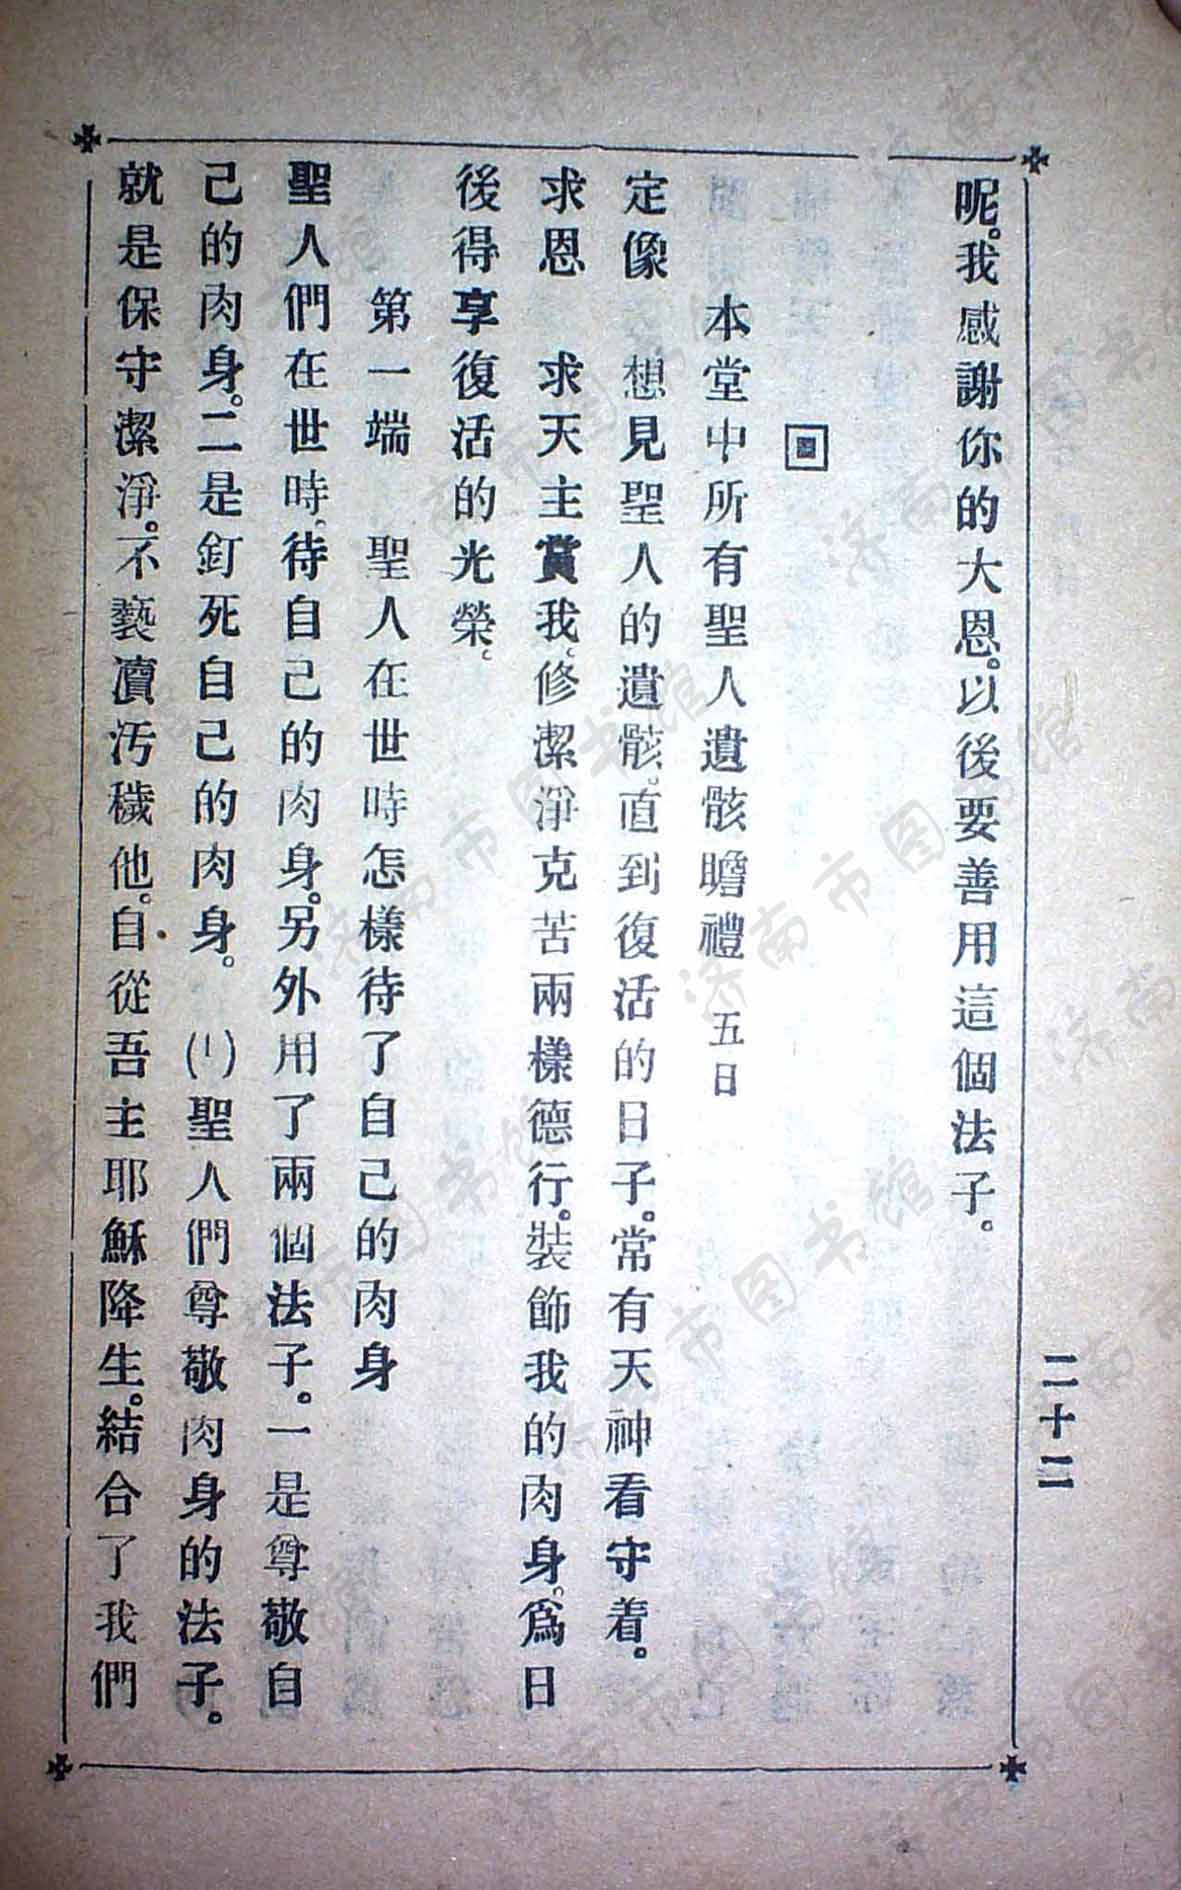 呢。我感謝你的大恩。以後要善用這個法子。
本堂中所有聖人遺骸瞻禮 五日
定像 想見聖人的遺骸。直到復活的日子。常有天神看守着。
求恩 求天主賞我、修潔淨克苦兩樣德行。裝飾我的肉身。爲日
後得享復活的光榮、
第一端 聖人在世時怎樣待了自己的肉身
聖人們在世時。待自己的肉身。另外用了兩個法子。一是尊敬自
己的肉身。二是釘死自己的肉身。 (1)聖人們尊敬肉身的法子。
就是保守潔淨。不褻瀆汚穢他。自從吾主耶穌降生。結合了我們
二十二
济南市图书馆